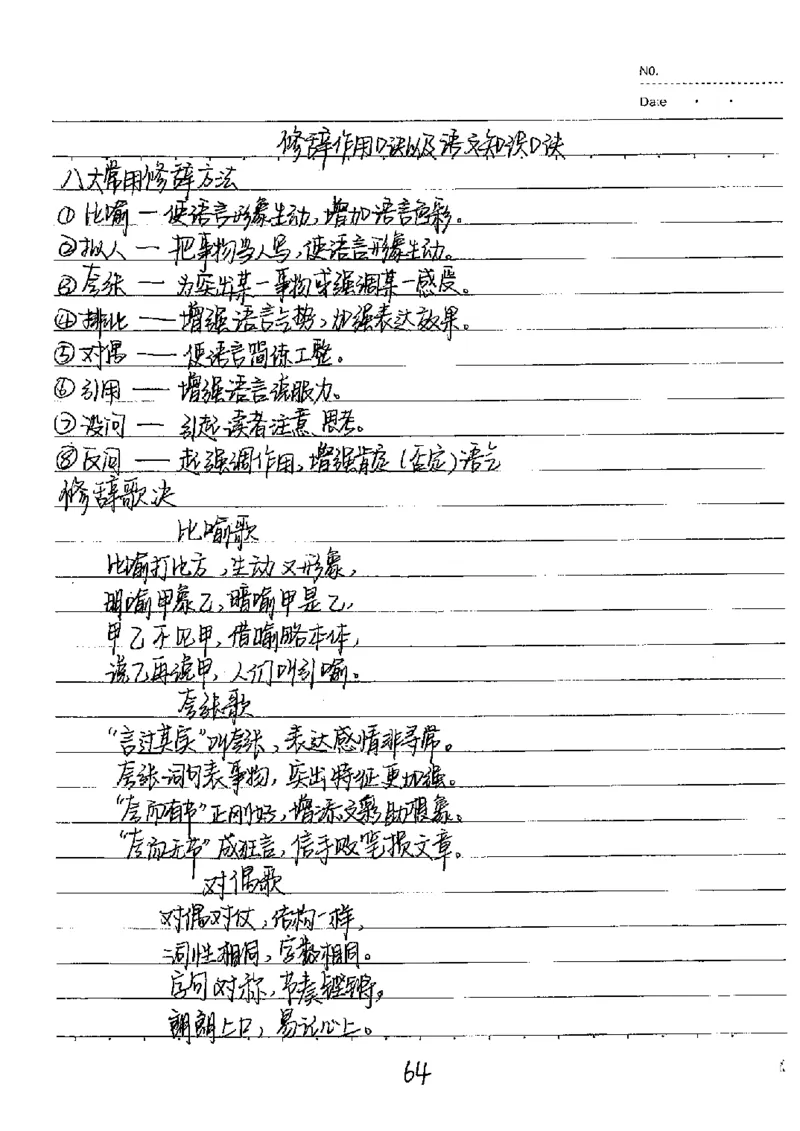 NO.
Date
修辞作用口诀以及语文知识口诀
八大常用修辞方法
① 比喻 — 使语言形象生动,增加语言色彩。
②拟人 — 把事物当人写,使语言形象生动。
③ 夸张 — 为突出某一事物或强调某一感受。
④排比 — 增强语言气势,加强表达效果。
⑤ 对偶 — 使语言简练工整。
⑥ 引用 — 增强语言说服力。
⑦ 设问 — 引起读者注意、思考。
⑧ 反问 — 起强调作用,增强肯定(否定)语气
修辞歌决
比喻歌
比喻打比方,生动又形象,
明喻甲象乙,暗喻甲是乙,
甲乙不见甲,借喻略本体,
说乙再说甲,人们叫引喻。
夸张歌
“言过其实”叫夸张,表达感情非寻常。
夸张词句表事物,突出特征更加强。
“夸而有节”正刚好,增添文彩助想象。
“夸而无节”成狂言,信手败笔损文章。
对偶歌
对偶对仗,结构一样,
词性相同,字数相同。
字句对称,节奏铿锵,
朗朗上口,易记心上。
64